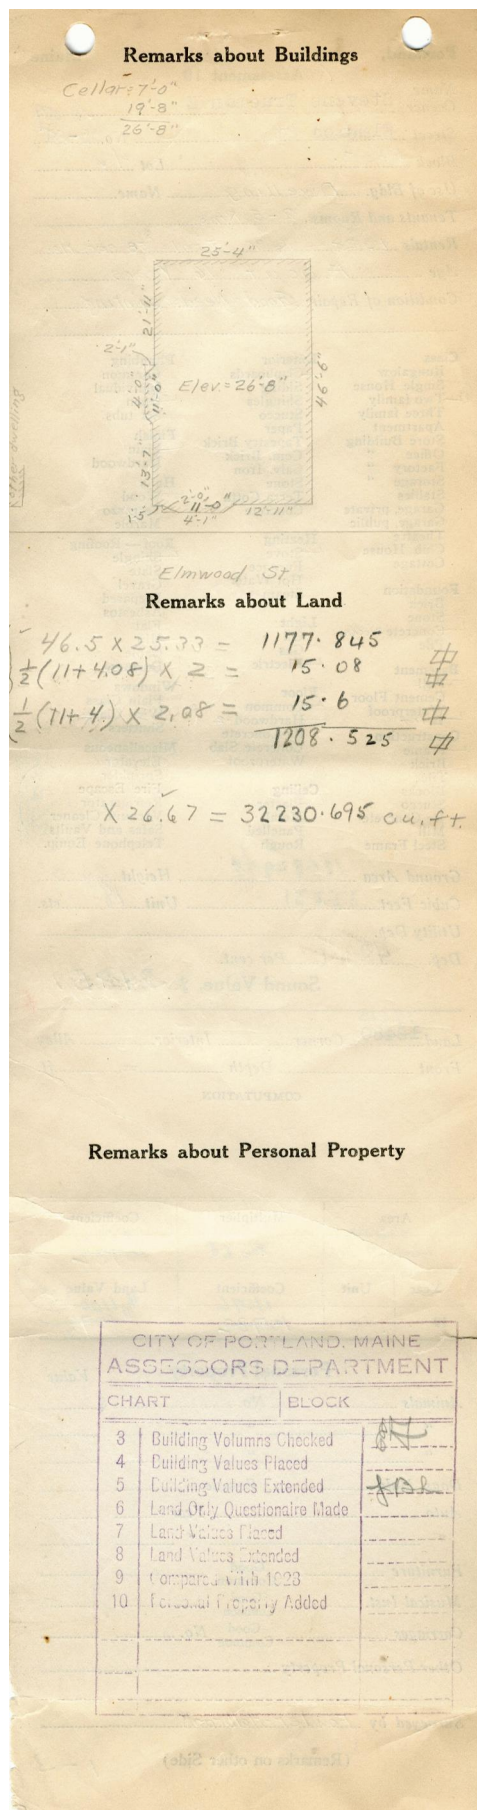 Remarks about Buildings
Cellar: 7'-0"
19'-8"
26'-8"
25'-4"
21'-11"
2'-1"
4'-0"
11'-0"
Elev. = 26'-8"
46'-6"
13'-7"
2'-0"
11'-0"
1'-5"
4'-1"
12'-11"
Elmwood St
Remarks about Land
46.5 X 25.33 = 1177.845 ⌗
½(11+4.08) X 2 = 15.08 ⌗
½(11+4) X 2.08 = 15.6 ⌗
1208.525 ⌗
X 26.67 = 32230.695 cu. ft.
Remarks about Personal Property
CITY OF PORTLAND, MAINE
ASSESSORS DEPARTMENT
CHART BLOCK
3 Building Volumns Checked
4 Building Values Placed
5 Building Values Extended
6 Land Only Questionaire Made
7 Land Values Placed
8 Land Values Extended
9 Compared With 1923
10 Personal Property Added